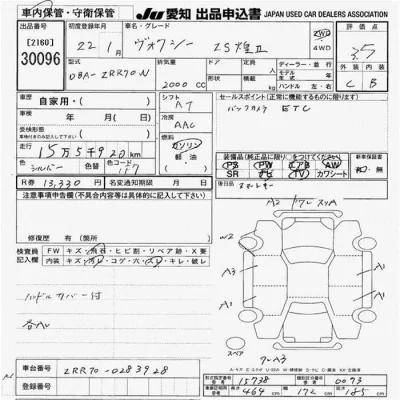 車内保管・守衛保管
JU 愛知 出品申込書 JAPAN USED CAR DEALERS ASSOCIATION
出品番号 初度登録年月 車名・グレード 2WD 4WD 評価点
[2160] 22 1 ヴォクシー ZS煌Ⅱ 3.5
30096
型式 排気量 ドア 定員 ディーラー・並行 外装 内装
DBA-ZRR70W 2000cc モデル年式 年 C B
ハンドル 左・右
車歴 自家用・( ) シフト AT セールスポイント(正常に機能するものに限る)
車検 年 月( ) 冷房 AAC バックカメラ ETC
受検形態
燃料 ガソリン 軽油
走行 15万5千920km
色 シルバー 色替 色コード 1F7
装備品(純正品に限り)をつけてください 新車保証書
PS PW エアB AW 有・無
SR ナビ TV カワシート
R券 13,330円 名変通知期限 月 日 後日品
注意事項申告欄(不具合等を具体的に)
修復歴 有(箇所 )
A2
W2
A3
A1
A1
スペア
検査員記入欄 FW キズ・飛石・ヒビ割・リペア跡・X要
内装 キズ・コゲ・穴・スレ・キレ・破レ
ハンドルカバー付
車台番号 ZRR70-0283928
登録番号
型式指定番号 15738 類別区分番号 0073
長さ 464 cm 幅 172 cm 高さ 185 cm